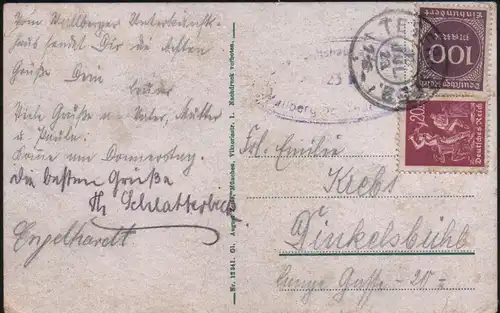 Vom Wallberger Unterkunft-
haus sendet Dir die besten
Grüße Dein
Viele Grüße an Vater, Mutter
u Paula.
Komme am Donnerstag.
Die besten Grüße
Th. Schlatterbeck
Engelhardt
Nr. 12341. Gl. August München, Viktoriastr. 1. Nachdruck verboten.
Einhundert
mark
100
Deutsches Reich
20
Deutsches Reich
23
Frl. Emilie
Krebs
Dinkelsbühl
Lange Gasse - 20 -